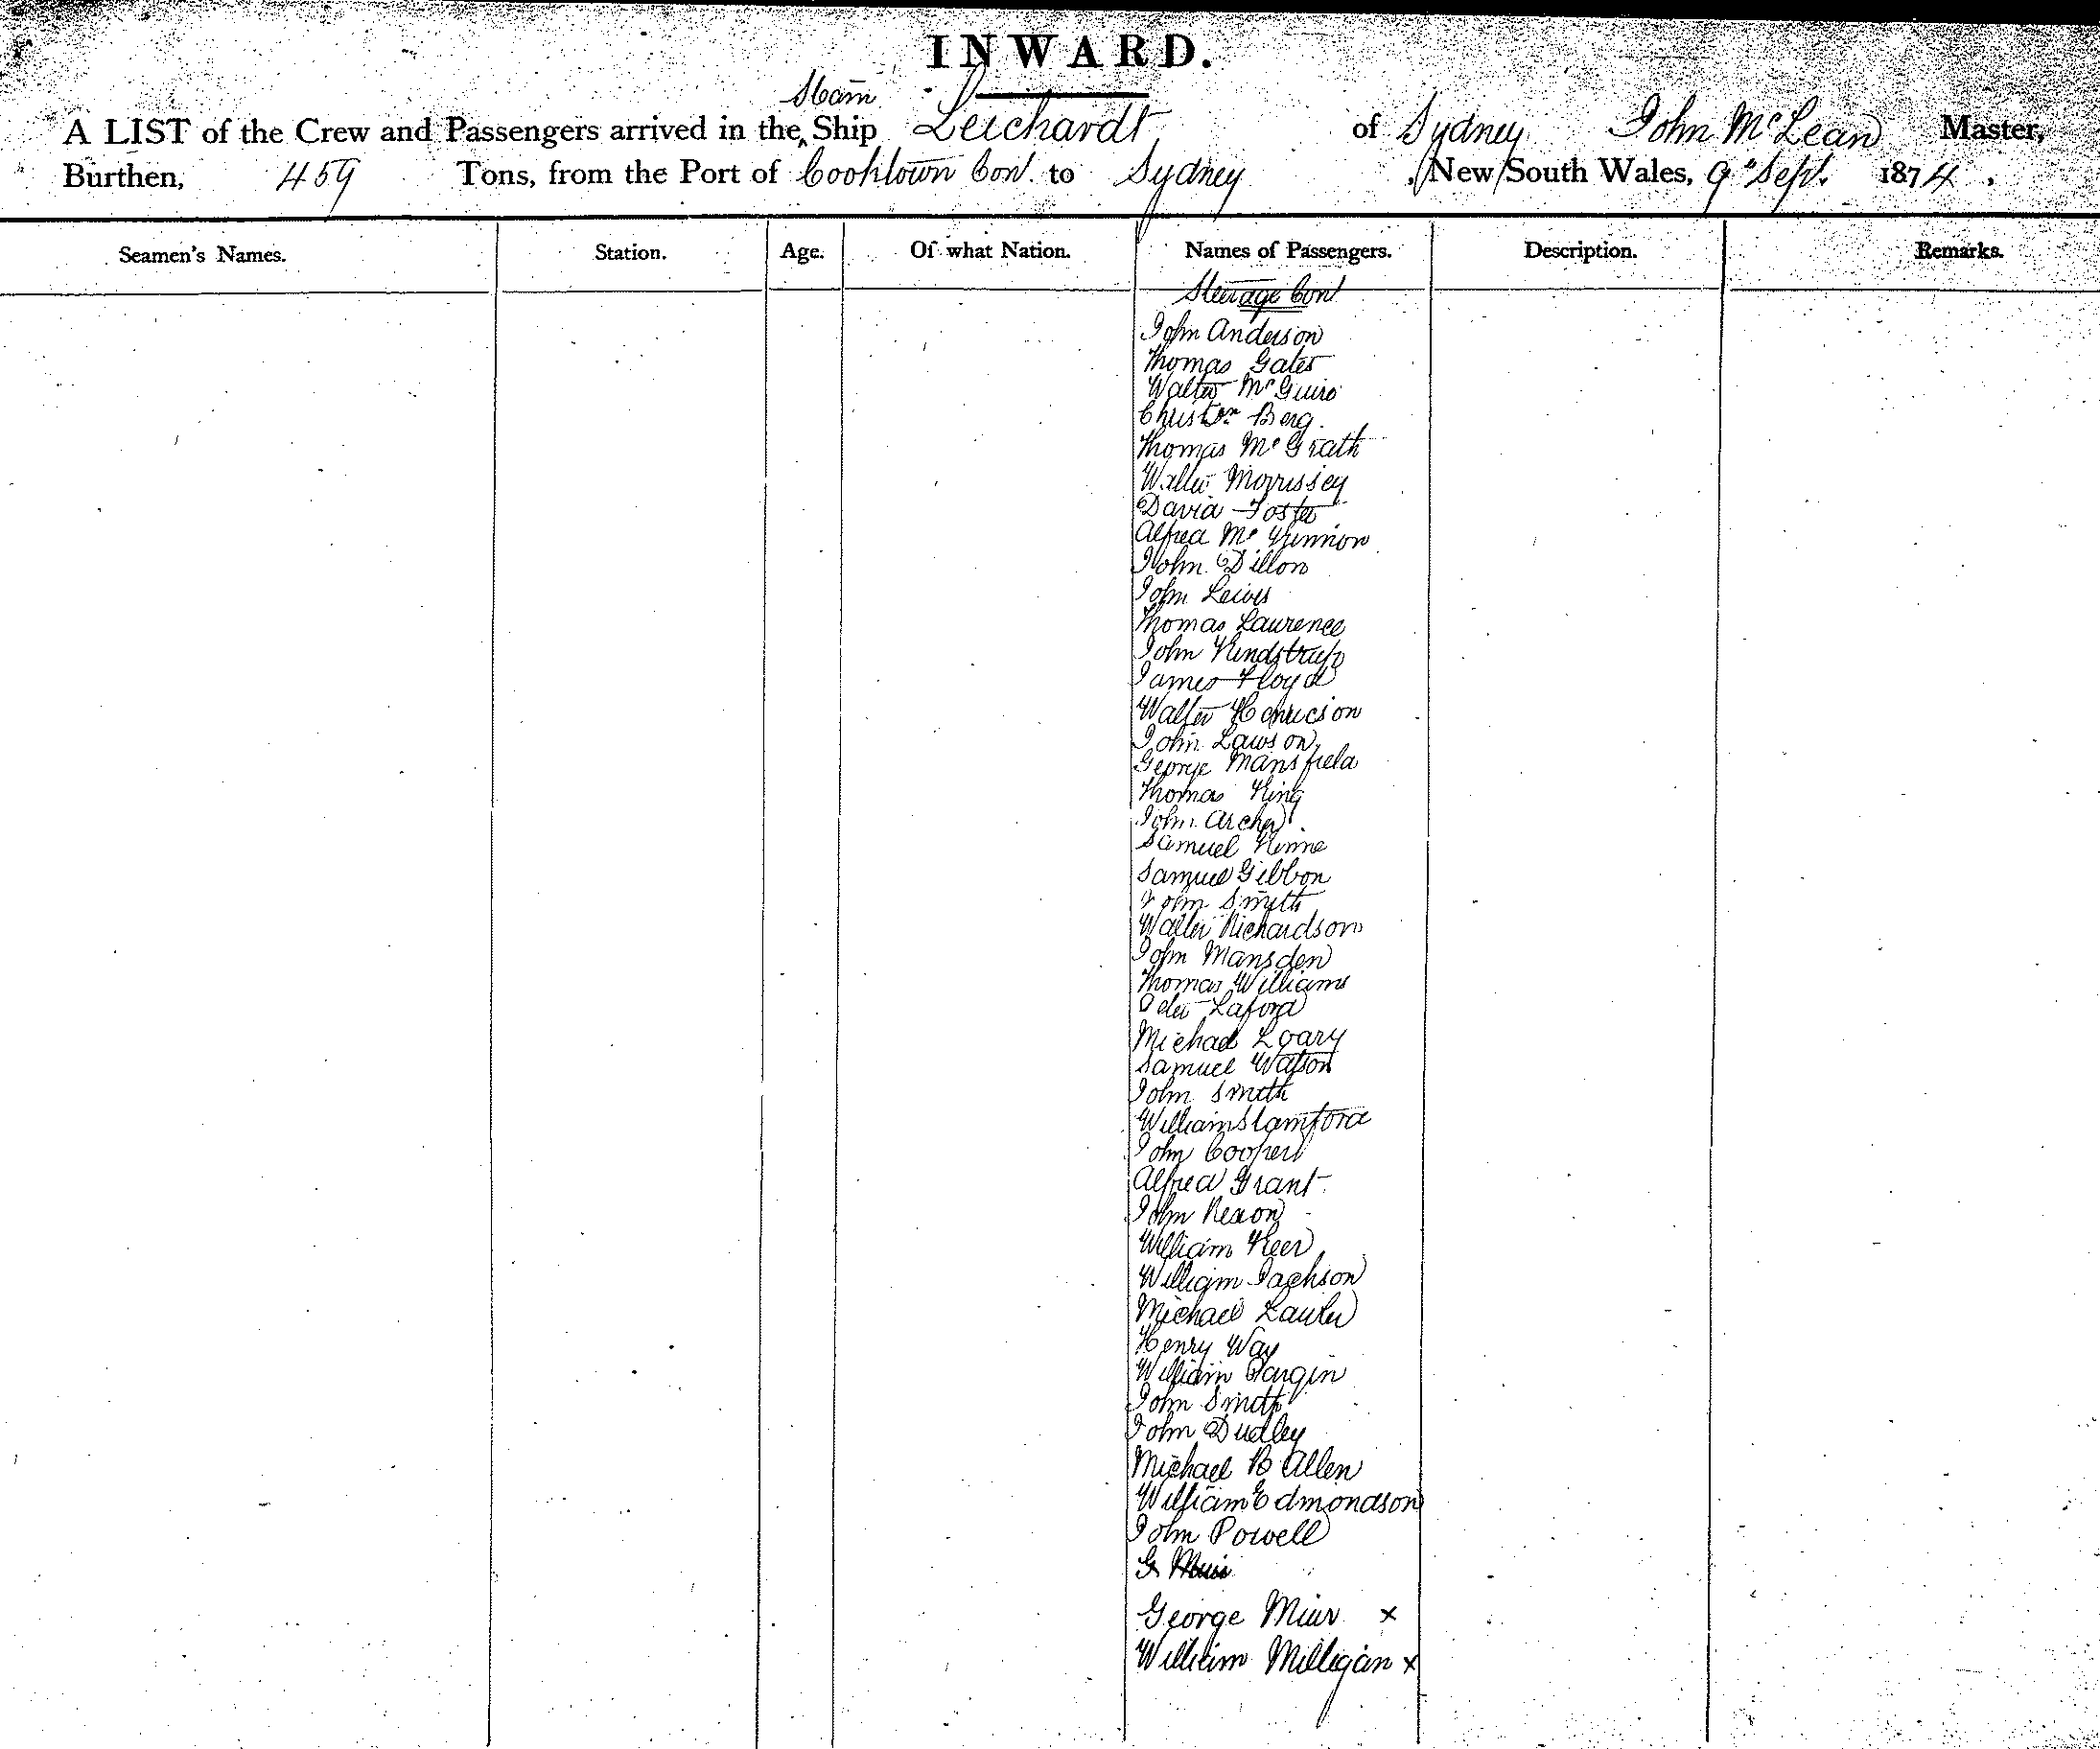 INWARD.
Steam
A LIST of the Crew and Passengers arrived in the Ship Leichardt of Sydney John McLean Master,
Burthen, 459 Tons, from the Port of Cooktown Cont. to Sydney, New South Wales, 9th Sept. 1874,
Seamen's Names. Station. Age. Of what Nation. Names of Passengers. Description. Remarks.
Steerage Cont
John Anderson
Thomas Gates
Walter McGuire
Berg
Thomas McGrath
Walter Morrissey
David Foster
Alfred
John Dillon
John Lewis
Thomas Laurence
John
James Floyd
Walter
John Lawson
George Mansfield
Thomas King
John Archer
Samuel
Samuel Gibbon
John Smith
Walter Richardson
John Mansden
Thomas Williams
Peter Laford
Michael Loary
Samuel Watson
John Smith
William Stamford
John Cooper
Alfred Grant
John
William Keer
William Jackson
Michael Lawler
Henry Way
William
John Smith
John Dudley
Michael B Allen
William Edmondson
John Powell
G Muir
George Muir x
William Milligan x